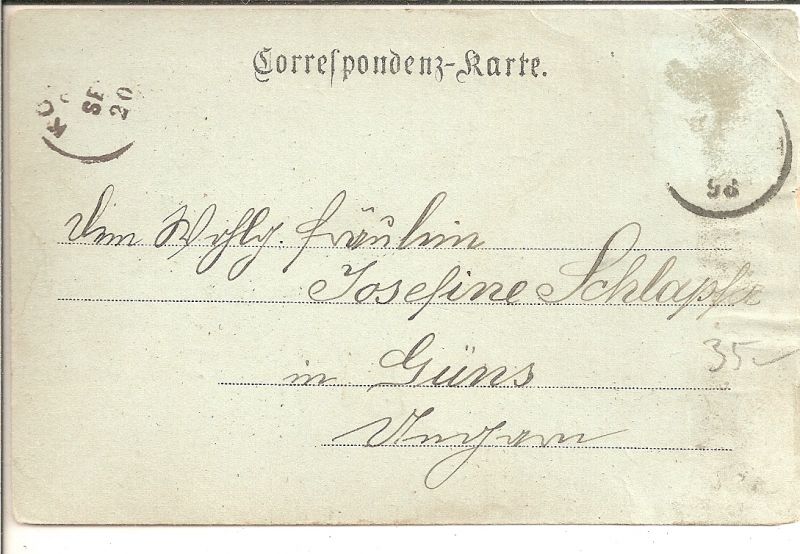 Correspondenz-Karte.
KŐ
SE
20
98
Dem Wohlg. Fräulein
Josefine Schlapfer
in Güns
35-
Ungarn